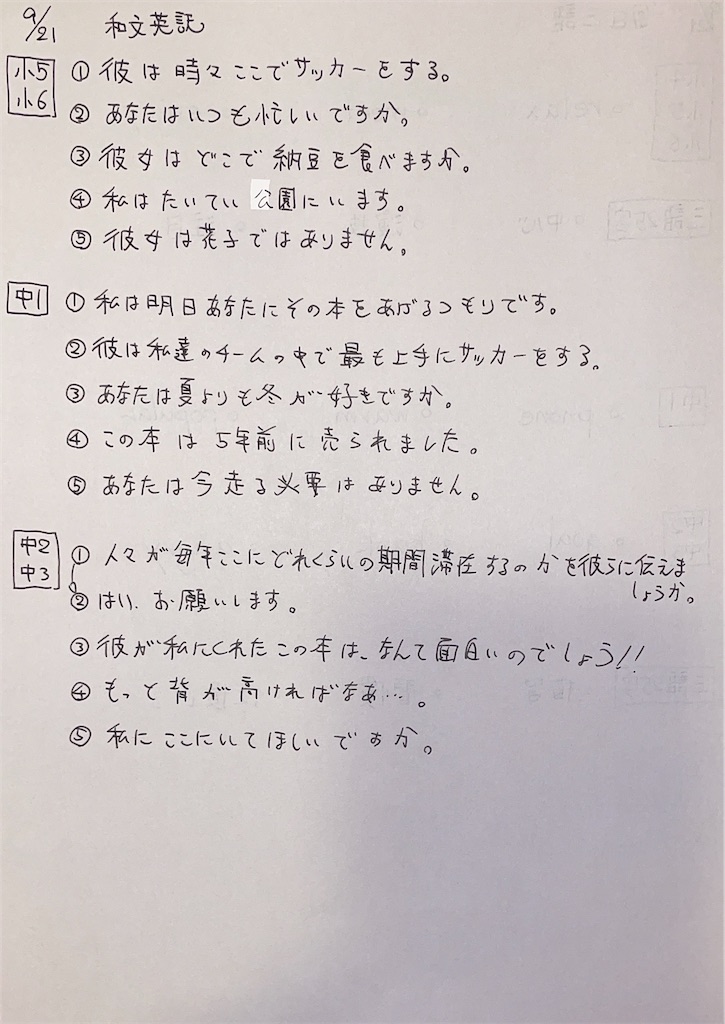 9/21 和文英訳
小5
小6
① 彼は時々ここでサッカーをする。
② あなたはいつも忙しいですか。
③ 彼女はどこで納豆を食べますか。
④ 私はたいてい公園にいます。
⑤ 彼女は花子ではありません。
中1
① 私は明日あなたにその本をあげるつもりです。
② 彼は私達のチームの中で最も上手にサッカーをする。
③ あなたは夏よりも冬が好きですか。
④ この本は5年前に売られました。
⑤ あなたは今走る必要はありません。
中2
中3
① 人々が毎年ここにどれくらいの期間滞在するのかを彼らに伝えま
しょうか。
② はい、お願いします。
③ 彼が私にくれたこの本は、なんて面白いのでしょう!!
④ もっと背が高ければなぁ…。
⑤ 私にここにいてほしいですか。